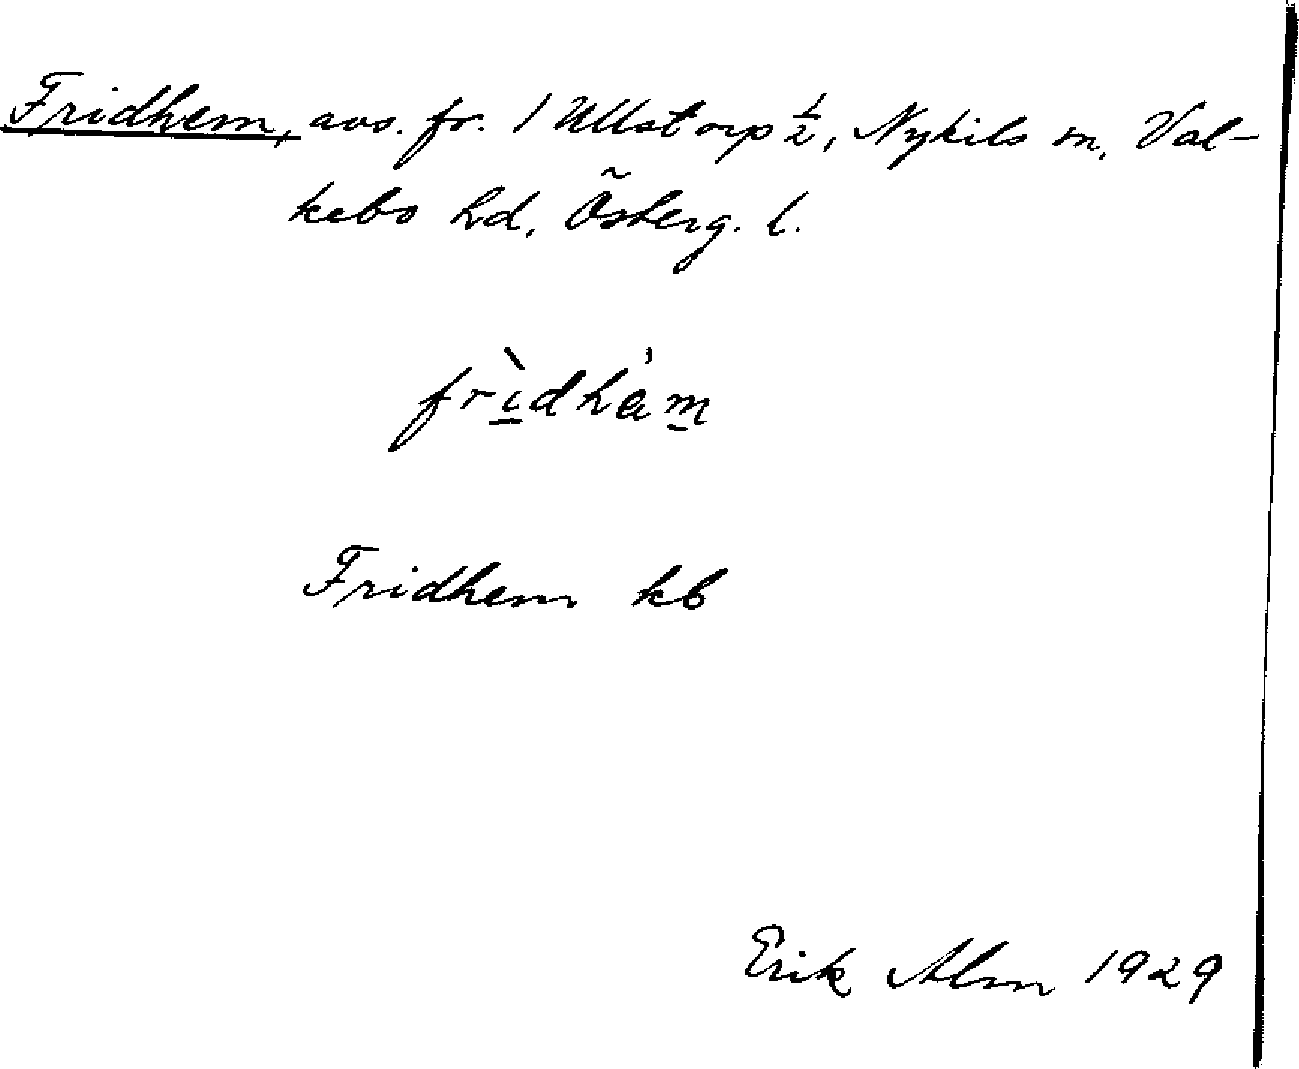 Fridhem, avs. fr. 1 Ullstorp ½, Nykils sn, Val-
kebo hd, Österg. l.
frìdhàm
Fridhem kb
Erik Alm 1929